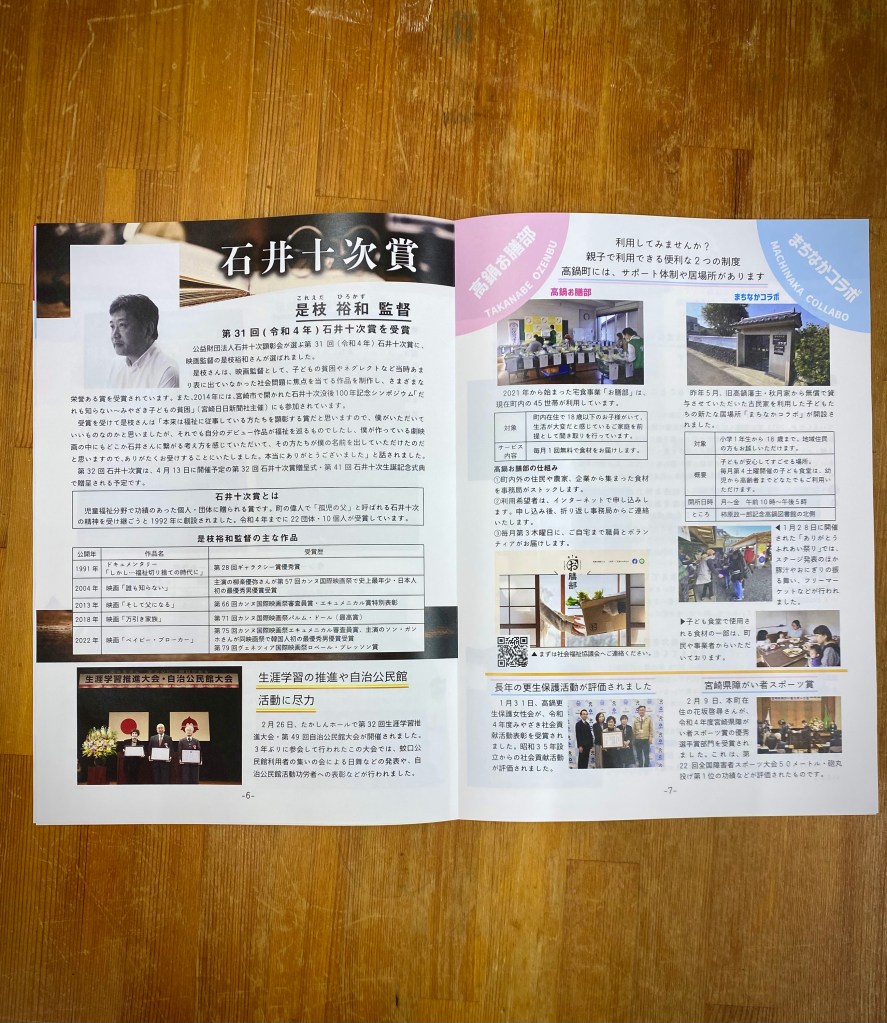 石井十次賞
これえだ ひろかず
是枝 裕和 監督
第31回(令和4年)石井十次賞を受賞
公益財団法人石井十次顕彰会が選ぶ第31回(令和4年)石井十次賞に、
映画監督の是枝裕和さんが選ばれました。
是枝さんは、映画監督として、子どもの貧困やネグレクトなど当時あま
り表に出ていなかった社会問題に焦点を当てる作品を制作し、さまざまな
栄誉ある賞を受賞されています。また、2014年には、宮崎市で開かれた石井十次没後100年記念シンポジウム「だ
れも知らない～みやざき子どもの貧困」(宮崎日日新聞社主催)にも参加されています。
受賞を受けて是枝さんは「本来は福祉に従事している方たちを顕彰する賞だと思いますので、僕がいただいて
いいものなのかと思いましたが、それでも自分のデビュー作品が福祉を巡るものでしたし、僕が作っている劇映
画の中にもどこか石井さんに繋がる考え方を感じていただいて、その方たちが僕の名前を出していただけたのだ
と思いますので、ありがたくお受けすることにいたしました。本当にありがとうございました」と話されました。
第32回石井十次賞は、4月13日に開催予定の第32回石井十次賞贈呈式・第41回石井十次生誕記念式典
で贈呈される予定です。
石井十次賞とは
児童福祉分野で功績のあった個人・団体に贈られる賞です。町の偉人で「孤児の父」と呼ばれる石井十次
の精神を受け継ごうと1992年に創設されました。令和4年までに22団体・10個人が受賞しています。
是枝裕和監督の主な作品
公開年 作品名 受賞歴
1991年 ドキュメンタリー「しかし…福祉切り捨ての時代に」 第28回ギャラクシー賞優秀賞
2004年 映画「誰も知らない」 主演の柳楽優弥さんが第57回カンヌ国際映画祭で史上最年少・日本人
初の最優秀男優賞受賞
2013年 映画「そして父になる」 第66回カンヌ国際映画祭審査員賞・エキュメニカル賞特別表彰
2018年 映画「万引き家族」 第71回カンヌ国際映画祭パルム・ドール(最高賞)
2022年 映画「ベイビー・ブローカー」 第75回カンヌ国際映画祭エキュメニカル審査員賞、主演のソン・ガン
ホさんが同映画祭で韓国人初の最優秀男優賞受賞
第79回ヴェネツィア国際映画祭ロベール・ブレッソン賞
生涯学習推進大会・自治公民館大会
生涯学習の推進や自治公民館
活動に尽力
2月26日、たかしんホールで第32回生涯学習推
進大会・第49回自治公民館大会が開催されました。
3年ぶりに参会して行われたこの大会では、蚊口公
民館利用者の集いの会による日舞などの発表や、自
治公民館活動功労者への表彰などが行われました。
-6-
高鍋お膳部
TAKANABE OZENBU
利用してみませんか?
親子で利用できる便利な2つの制度
高鍋町には、サポート体制や居場所があります
まちなかコラボ
MACHINAKA COLLABO
高鍋お膳部
2021年から始まった宅食事業「お膳部」は、
現在町内の45世帯が利用しています。
対象 町内在住で18歳以下のお子様がいて、
生活が大変だと感じているご家庭を前
提として聞き取りを行っています。
サービス内容 毎月1回無料で食材をお届けします。
高鍋お膳部の仕組み
①町内外の住民や農家、企業から集まった食材
を事務局がストックします。
②利用希望者は、インターネットで申し込みし
ます。申し込み後、折り返し事務局からご連絡
いたします。
③毎月第3木曜日に、ご自宅まで職員とボラン
ティアがお届けします。
お膳部
▲まずは社会福祉協議会へご連絡ください。
まちなかコラボ
昨年5月、旧高鍋藩主・秋月家から無償で貸
与させていただいた古民家を利用した子どもた
ちの新たな居場所「まちなかコラボ」が開設さ
れました。
対象 小学1年生から18歳まで。地域住民
の方もお越しいただけます。
概要 子どもが安心してすごせる場所。
毎月第4土曜開催の子ども食堂は、幼
児から高齢者までどなたでもご利用い
ただけます。
開所日時 月～金 午前10時～午後5時
ところ 柿原政一郎記念高鍋図書館の北側
◀1月28日に開催
された「ありがとう
ふれあい祭り」では、
ステージ発表のほか
豚汁やおにぎりの振
る舞い、フリーマー
ケットなどが行われ
ました。
▶子ども食堂で使用
される食材の一部は、町民
や事業者からいただ
いております。
長年の更生保護活動が評価されました
1月31日、高鍋更
生保護女性会が、令和
4年度みやざき社会貢
献活動表彰を受賞され
ました。昭和35年設
立からの社会貢献活動
が評価されました。
宮崎県障がい者スポーツ賞
2月9日、本町在
住の花坂啓尋さんが、
令和4年度宮崎県障が
い者スポーツ賞の優秀
選手賞部門を受賞され
ました。これは、第
22回全国障害者スポーツ大会50メートル・砲丸
投げ第1位の功績などが評価されたものです。
-7-